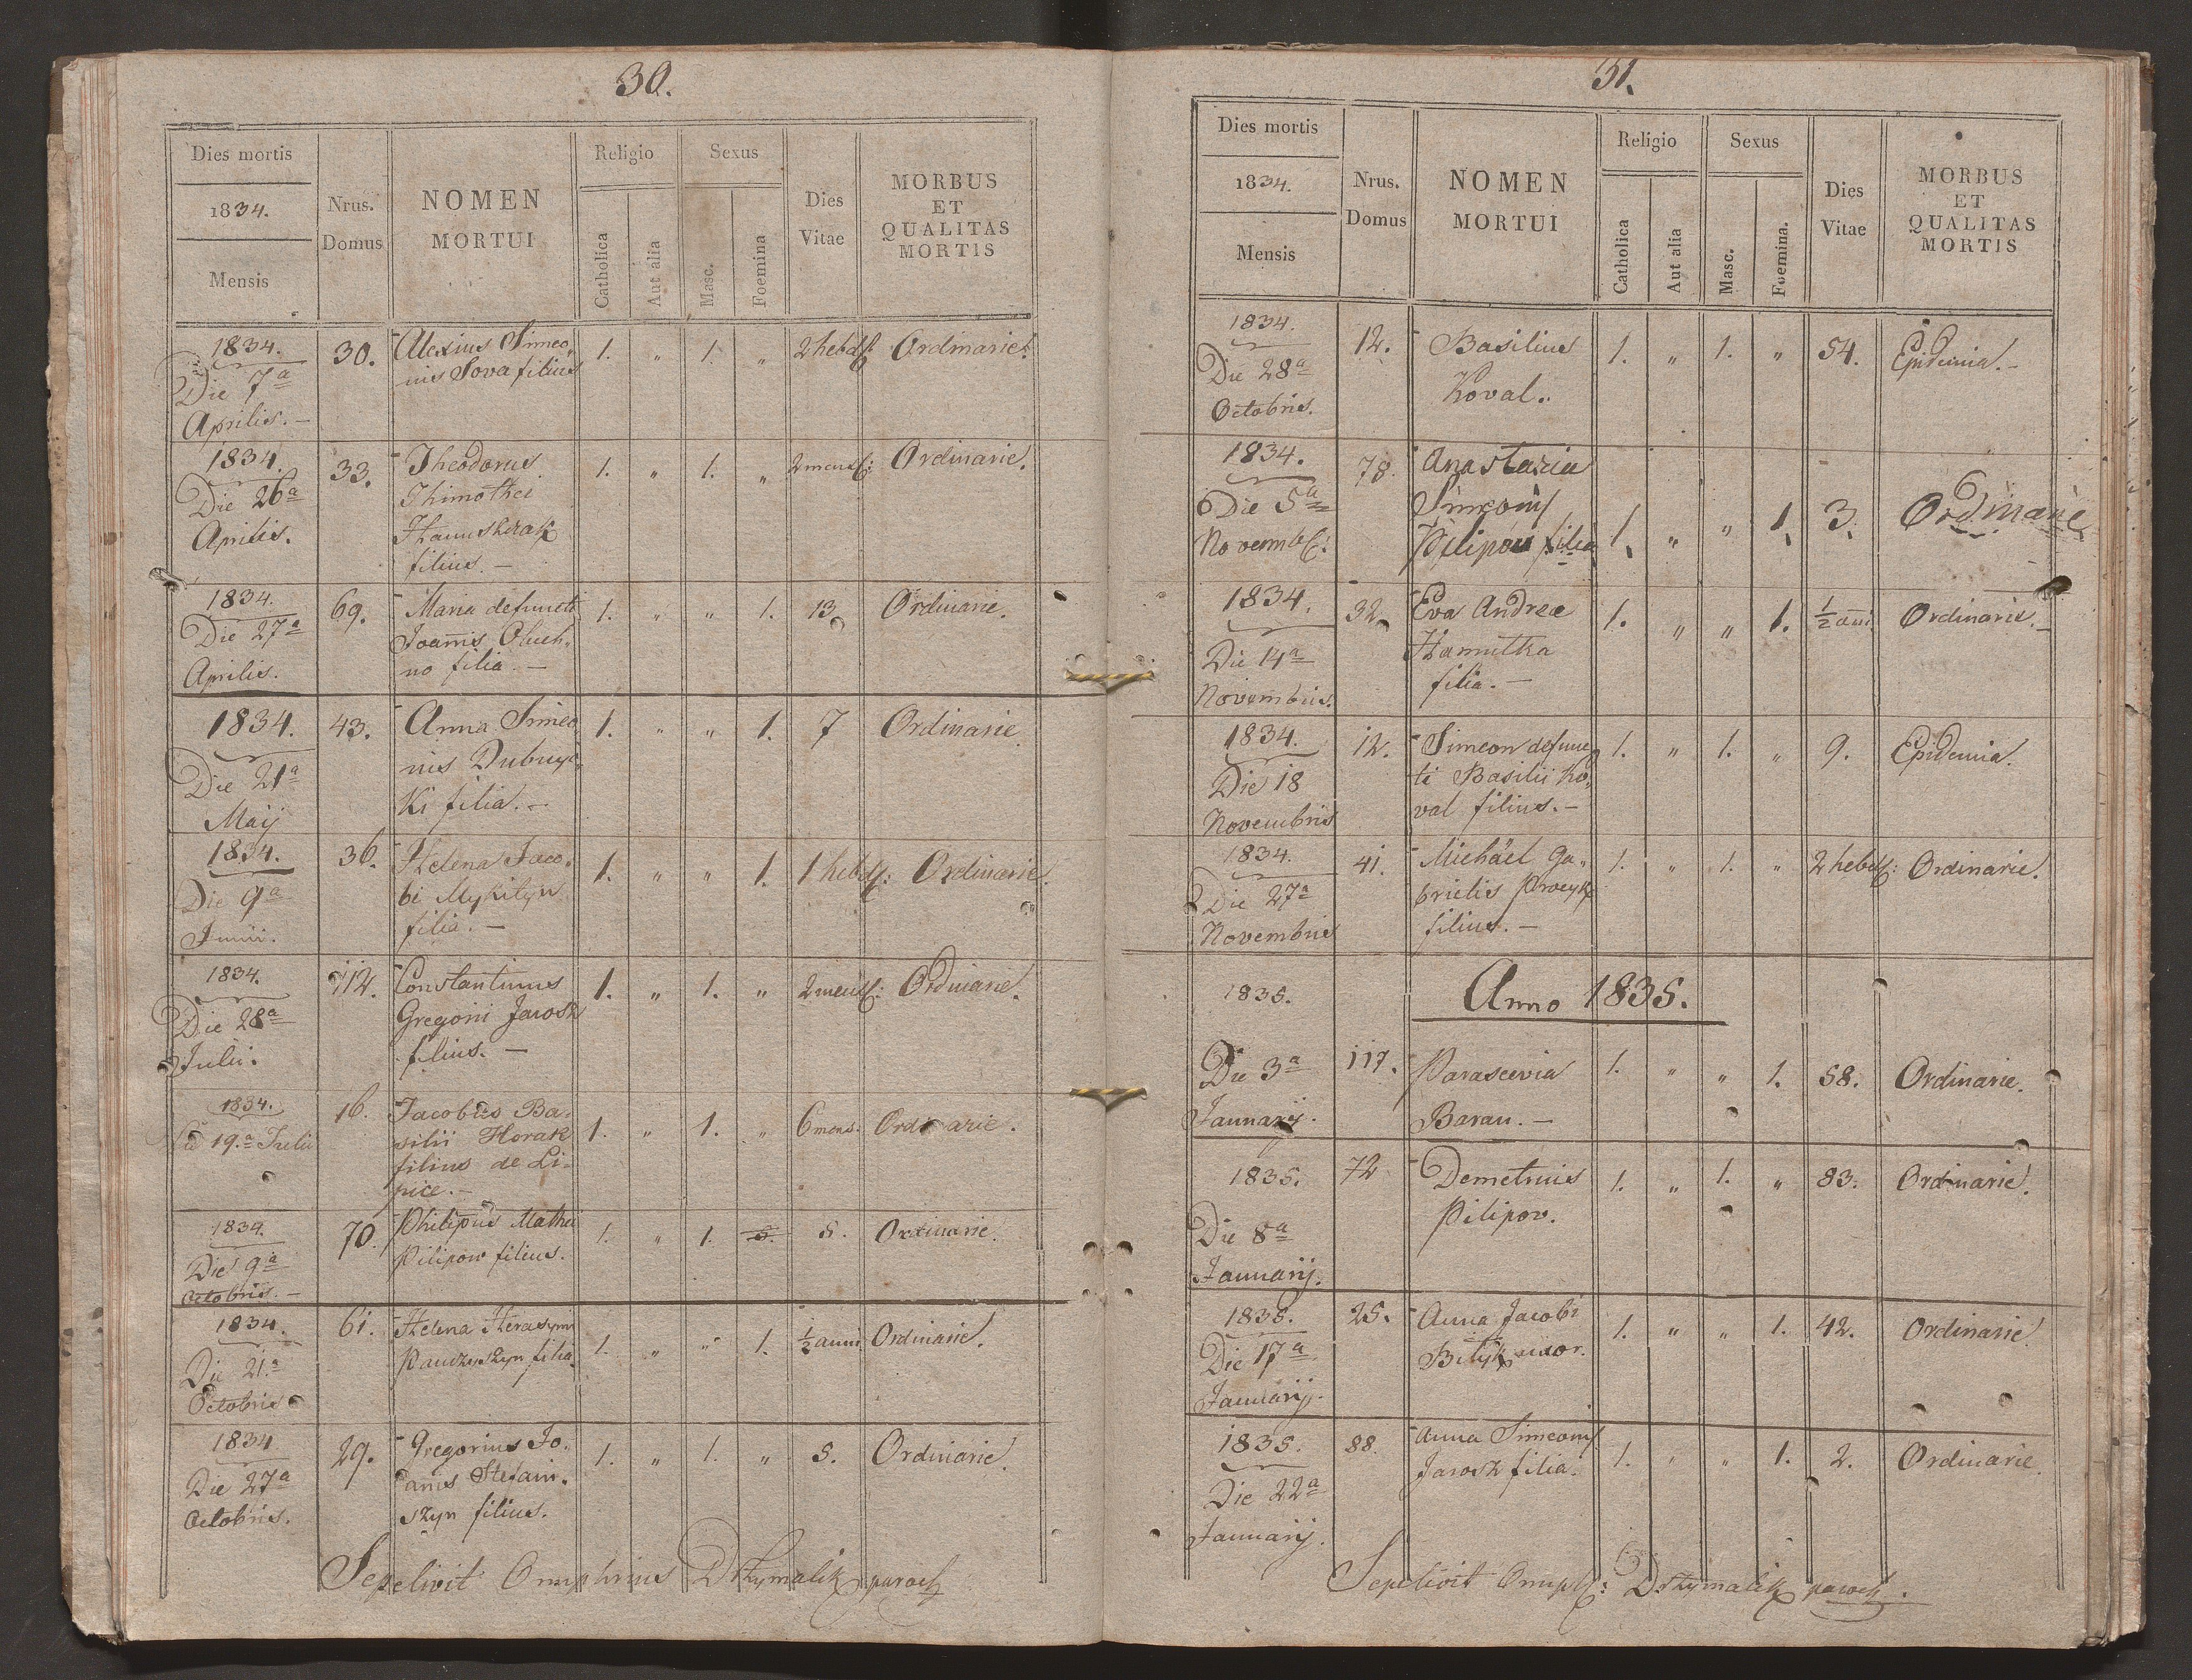 30.
Dies mortis
1834.
Mensis
Nrus.
Domus
NOMEN
MORTUI
Religio
Catholica
Aut alia
Sexus
Masc.
Foemina
Dies
Vitae
MORBUS
ET
QUALITAS
MORTIS
1834. 30. Alexius Simeo„ 1. „ 1. „ 2 hebd: Ordinarie.
Die 7a nis Sova filius
Aprilis.—
1834. 33. Theodorus 1. „ 1. „ 2 mens: Ordinarie.
Die 26a Thimothei
Aprilis.
filius.—
1834. 69. Maria defuncti 1. „ „ 1. 13. Ordinarie.
Die 27a Joannis Oluch„
Aprilis. no filia.—
1834. 43. Anna Simeo„ 1. „ „ 1. 7 Ordinarie
Die 21a nis
Maij Ki filia.—
1834. 36. Helena Jaco„ 1. „ „ 1. 1 hebd: Ordinarie.
Die 9a bi Mykityn
Junii. filia.—
1834. 112. Constantinus 1. „ 1. „ 2 mens: Ordinarie.
Die 28a Gregorii Jarosz
Julii. filius.—
1834. 16. Jacobus Ba„ 1. „ 1. „ 6 mens. Ordinarie.
Die 19.a Julii silii Horak
filius de Li„
pice.—
1834. 70. Philipus Mathei 1. „ 1. 5. 5. Ordinarie.
Die 9a Pilipow filius.
Octobris.—
1834. 61. Helena Herasymi 1. „ „ 1. ½ anni Ordinarie.
Die 21.a filia.
Octobris
1834 29. Gregorius Jo„ 1. „ 1. „ 5. Ordinarie.
Die 27a anis Stefani„
Octobris. szyn filius.
Sepelivit Onuphrius Drzymalik paroch
31.
Dies mortis
1834.
Mensis
Nrus.
Domus
NOMEN
MORTUI
Religio
Catholica
Aut alia
Sexus
Masc.
Foemina.
Dies
Vitae
MORBUS
ET
QUALITAS
MORTIS
1834. 12. Basilius 1. „ 1. „ 54. Epidemia.—
Die 28a Koval.
Octobris.
1834. 78. Anastasia
Die 5a Simeonis
Novemb: Pilipow filia 1. „ „ 1. 3. Ordinarie
1834. 32. Eva Andreae 1. „ „ 1. ½ ani. Ordinarie.—
Die 14a Hamutka
Novembris. filia.—
1834. 12. Simeon defunc„ 1. „ 1. „ 9. Epidemia.
Die 18 ti Basilii Ko„
Novembris val filius.—
1834. 41. Michäel Ga„ 1. „ 1. „ 2 hebd: Ordinarie.
Die 27a brielis Procyk
Novembris filius.—
1835. Anno 1835.
Die 3a 117. Parascevia 1. „ „ 1. 58. Ordinarie.
Januarij. Baran.—
1835. 72 Demetrius 1. „ 1. „ 83. Ordinarie.
Die 8a Pilipov.
Januarij.
1835. 25. Anna Jacobi 1. „ „ 1. 42. Ordinarie
Die 17a Bilyk uxor.
Januarij.
1835. 88. Anna Simeonis 1. „ „ 1. 2. Ordinarie.
Die 22a Jarosz filia.
Januarij.
Sepelivit Onuph: Drzymalik paroch.